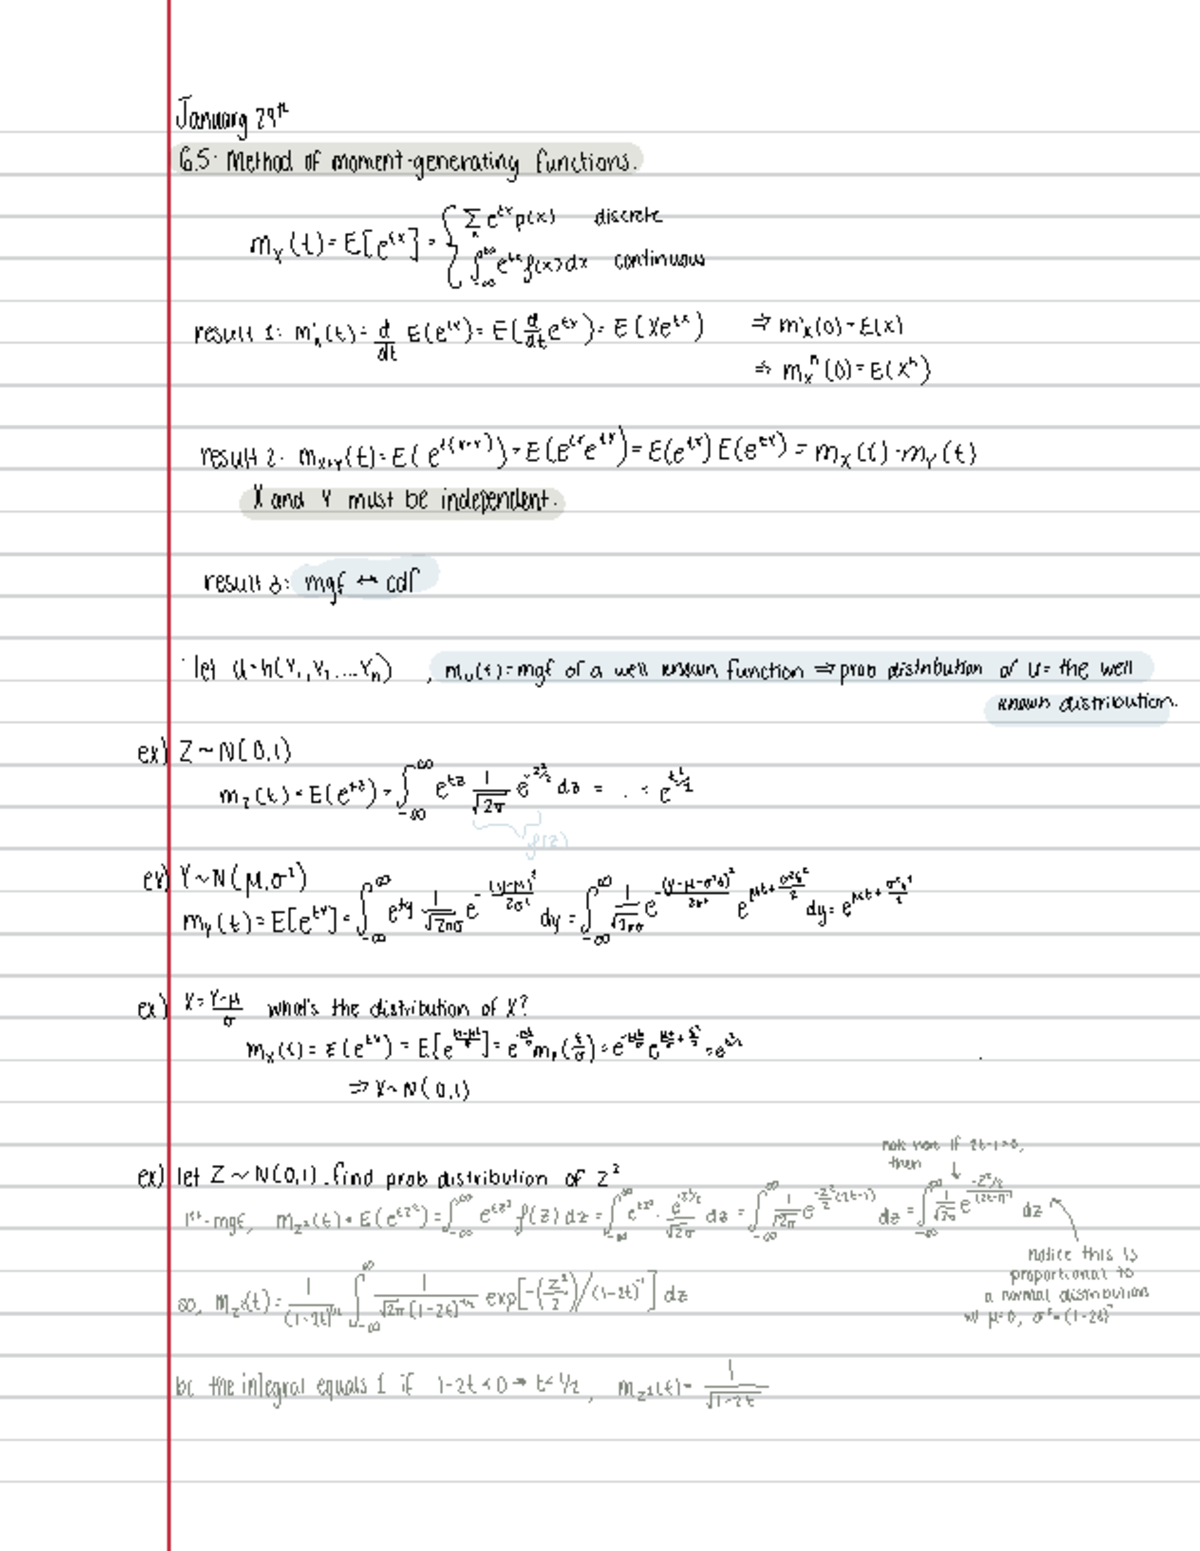 January 29th
6.5: Method of moment-generating functions.
m_X(t) = E[e^{tx}] = { Σ_x e^{tx} p(x) discrete
∫_{-∞}^{∞} e^{tx} f(x) dx continuous
result 1: m'_X(t) = d/dt E(e^{tx}) = E(d/dt e^{tx}) = E(Xe^{tx}) ⇒ m'_X(0) = E(X)
⇒ m_X^n(0) = E(X^n)
result 2: m_{X+Y}(t) = E(e^{t(X+Y)}) = E(e^{tX}e^{tY}) = E(e^{tX})E(e^{tY}) = m_X(t)·m_Y(t)
X and Y must be independent.
result 3: mgf ↔ cdf
let U=h(Y_1, Y_2 .... Y_n), m_U(t) = mgf of a well known function ⇒ prob distribution of U = the well
known distribution.
ex) Z ~ N(0,1)
m_Z(t) = E(e^{tz}) = ∫_{-∞}^{∞} e^{tz} 1/√2π e^{-z²/2} dz = . . = e^{t²/2}
f(z)
ex) Y ~ N(μ, σ²)
m_Y(t) = E[e^{tY}] = ∫_{-∞}^{∞} e^{ty} 1/√2πσ e^{-(y-μ)²/2σ²} dy = ∫_{-∞}^{∞} 1/√2πσ e^{-(y-μ-σ²t)²/2σ²} e^{μt+σ²t²/2} dy = e^{μt+σ²t²/2}
ex) X = Y-μ/σ what's the distribution of X?
m_X(t) = E(e^{tX}) = E[e^{] = e^{-μt/σ} m_Y(t/σ) = e^{-μt/σ} e^{μt/σ + t²/2} = e^{t²/2}
⇒ X ~ N(0,1)
ex) let Z ~ N(0,1). find prob distribution of Z²
note if 2t-1>0,
then
1st - mgf, m_{Z²}(t) = E(e^{tZ²}) = ∫_{-∞}^{∞} e^{tz²} f(z) dz = ∫_{-∞}^{∞} e^{tz²} · e^{-z²/2}/√2π dz = ∫_{-∞}^{∞} 1/√2π e^{-z²/2 (2t-1)} dz = ∫_{-∞}^{∞} 1/√2π e^{-z²/2/(2t-1)^{-1}} dz
notice this is
proportional to
a normal distribution
w/ μ=0, σ²=(1-2t)^{-1}
so, m_{Z²}(t) = 1/(1-2t)^{1/2} ∫_{-∞}^{∞} 1/√2π(1-2t)^{-1/2} exp[-(z²/2)/(1-2t)^{-1}] dz
bc the integral equals 1 if 1-2t<0 → t<1/2, m_{Z²}(t) = 1/√1-2t